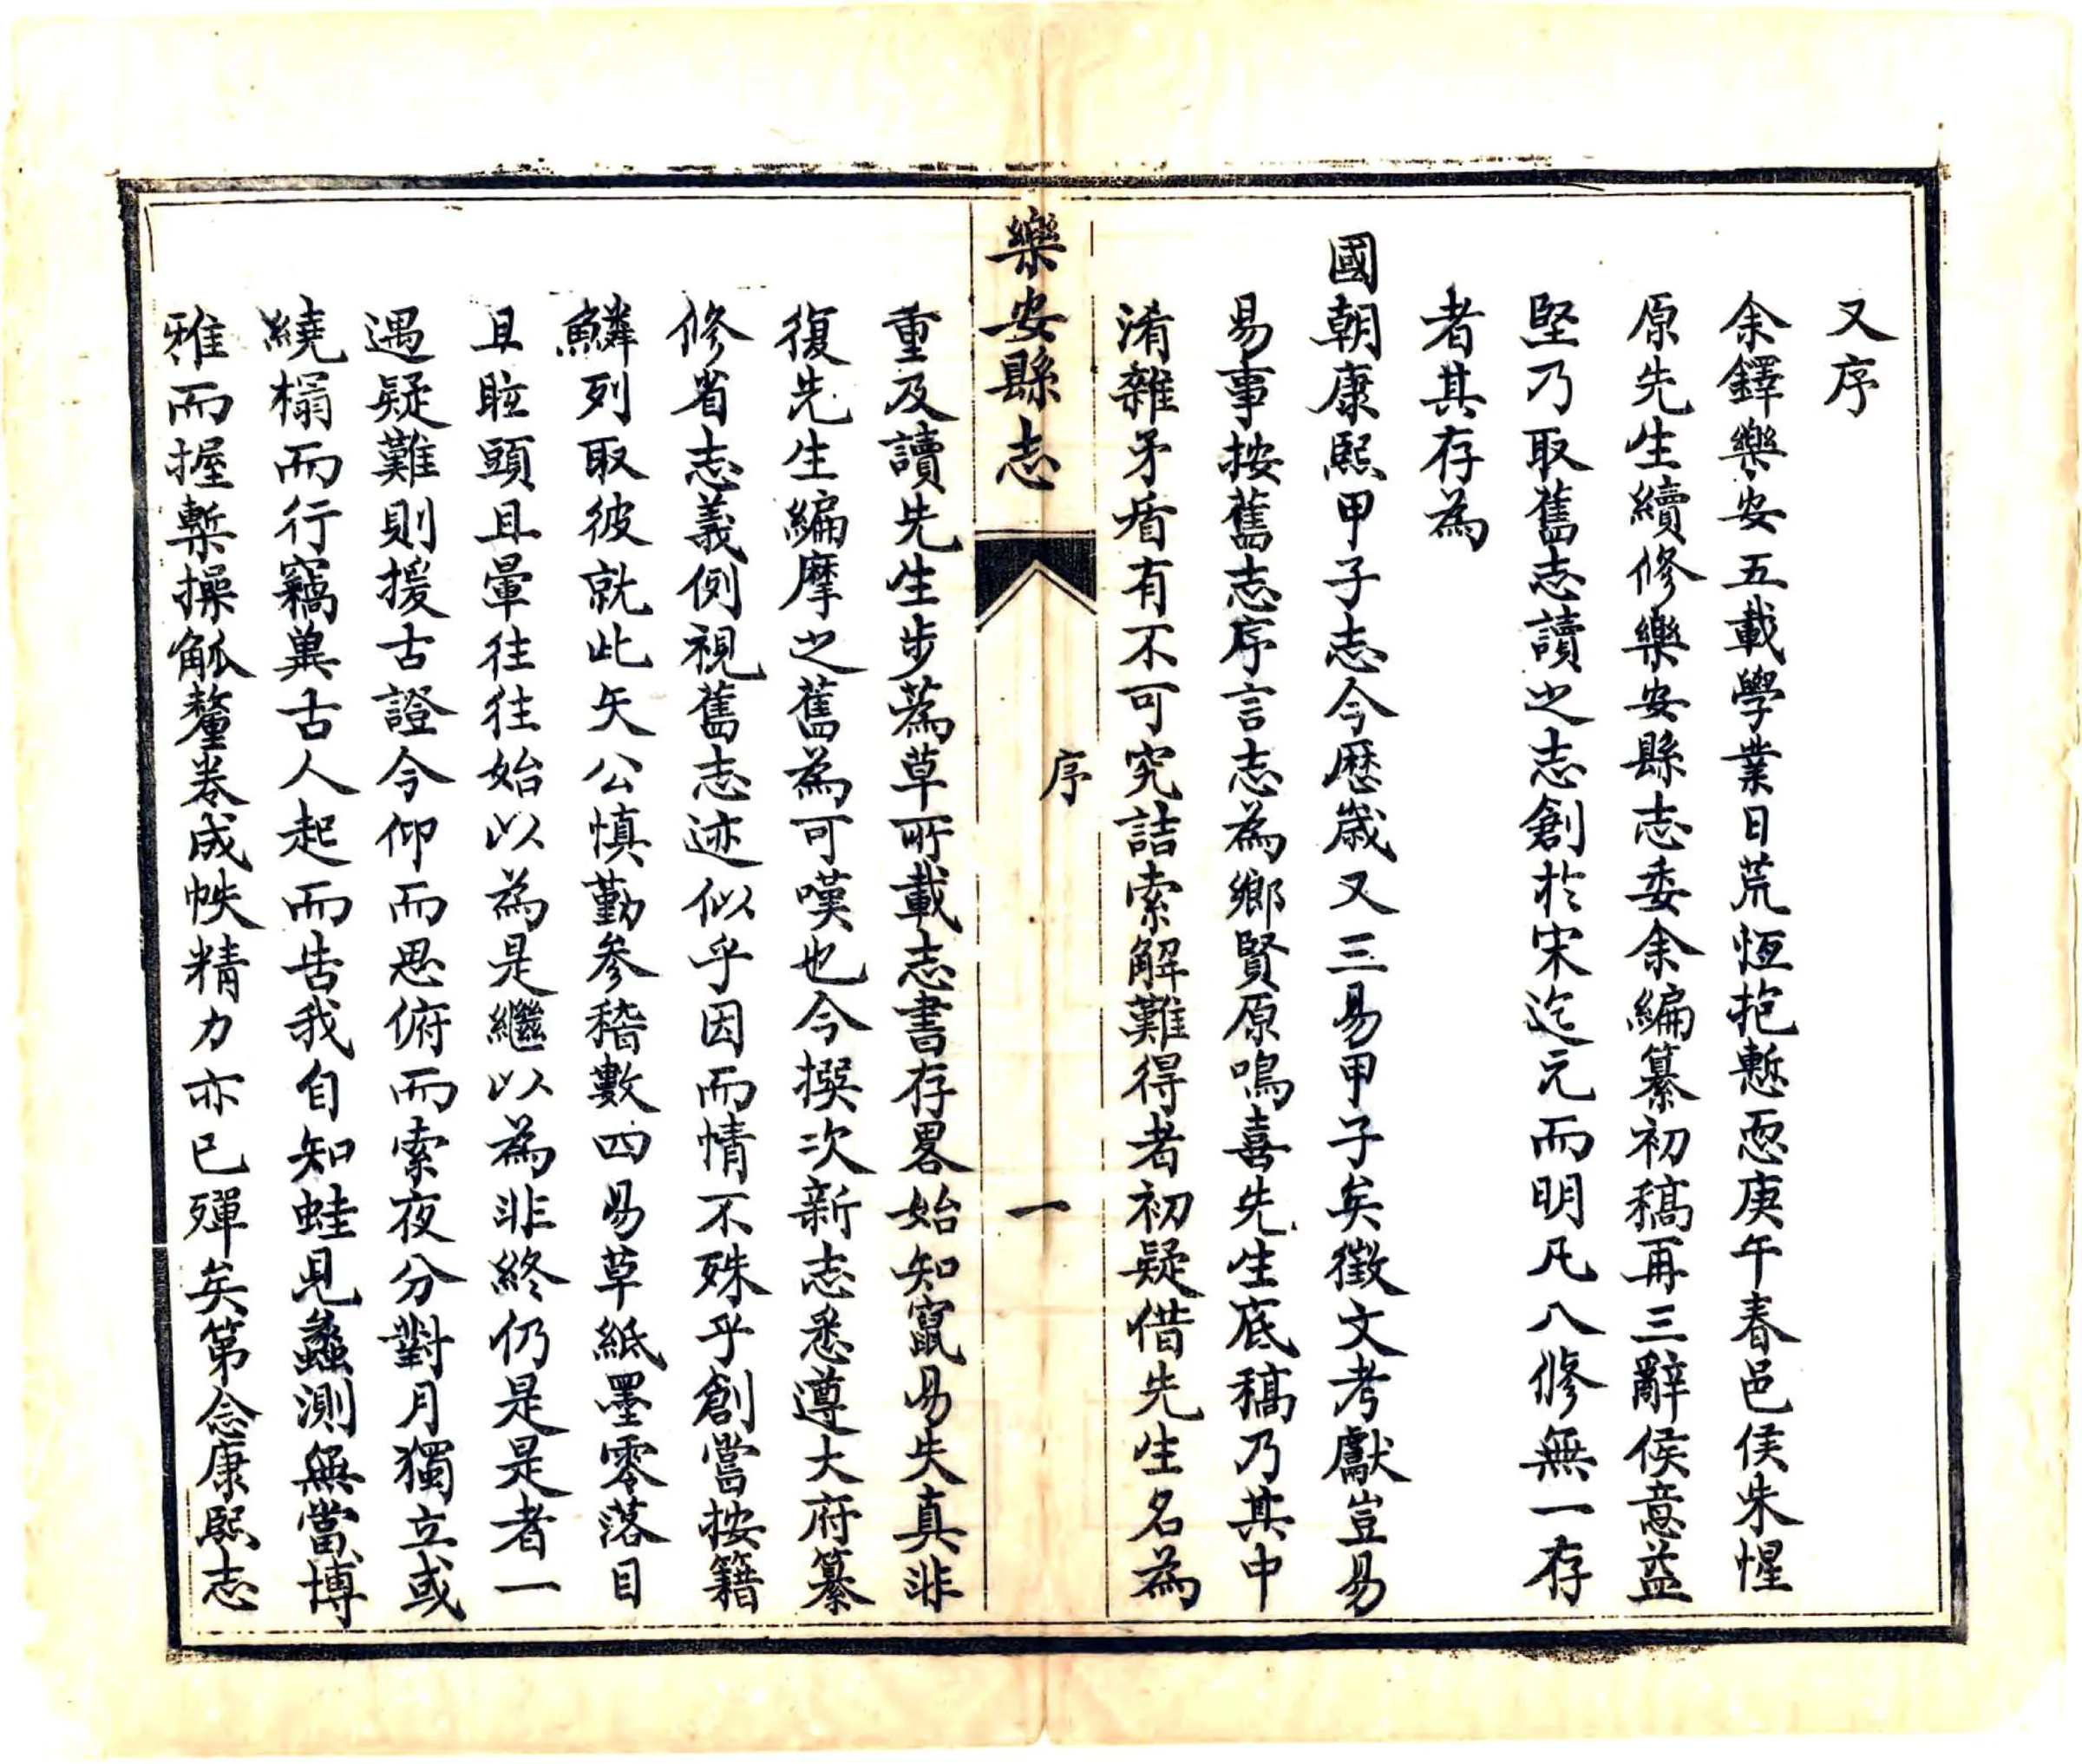 又序
余鐸樂安五載學業日荒恆抱慙恧庚午春邑侯朱惺
原先生續修樂安縣志委余編纂初稿再三辭侯意益
堅乃取舊志讀之志創於宋迄元而明凡八修無一存
者其存為
國朝康熙甲子志今歷歲又三易甲子矣徵文考獻豈易
易事按舊志序言志為鄉賢原鳴喜先生底稿乃其中
淆雜矛盾有不可究詰索解難得者初疑借先生名為
樂安縣志
序
一
重及讀先生步蔿草所載志書存畧始知竄易失真非
復先生編摩之舊為可嘆也今撰次新志悉遵大府纂
修省志義例視舊志迹似乎因而情不殊乎創當按籍
鱗列取彼就此矢公慎勤參稽數四易草紙墨零落目
且眩頭且暈往往始以為是繼以為非終仍是是者一
遇疑難則援古證今仰而思俯而索夜分對月獨立或
繞榻而行竊冀古人起而告我自知蛙見蠡測無當博
雅而握槧操觚釐卷成帙精力亦已殫矣第念康熙志